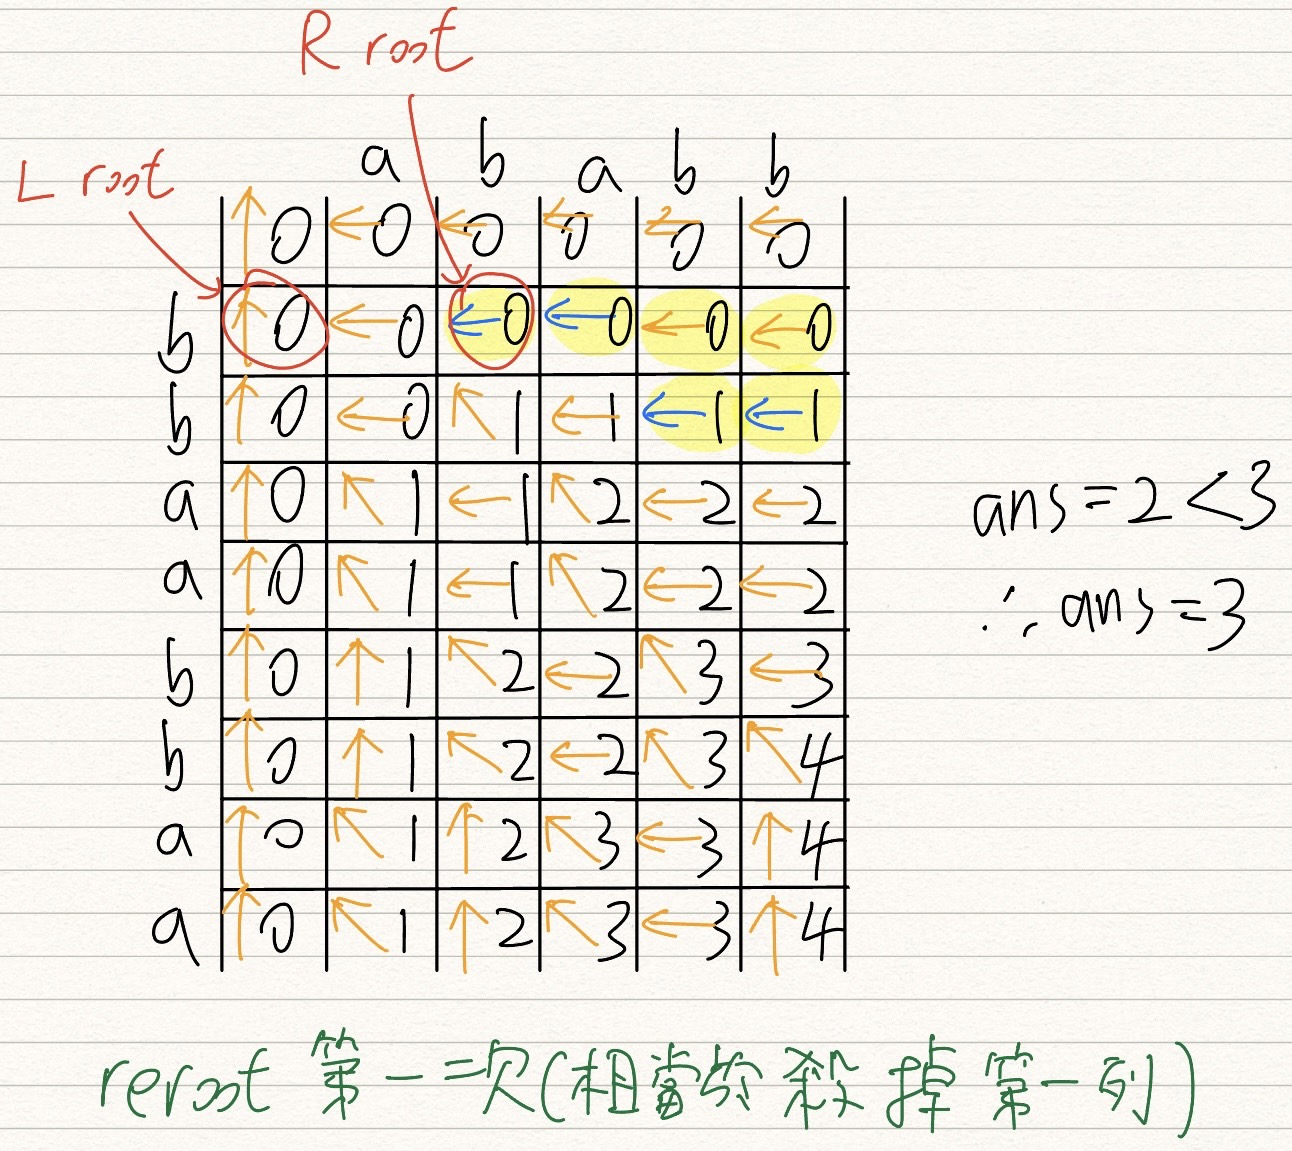 R root
L root
a b a b b
↑0 ←0 ←0 ←0 ←0 ←0
b ↑0 ←0 ←0 ←0 ←0 ←0
b ↑0 ←0 ↖1 ←1 ←1 ←1
a ↑0 ↖1 ←1 ↖2 ←2 ←2
a ↑0 ↖1 ←1 ↖2 ←2 ←2
b ↑0 ↑1 ↖2 ←2 ↖3 ←3
b ↑0 ↑1 ↖2 ←2 ↖3 ↖4
a ↑0 ↖1 ↑2 ↖3 ←3 ↑4
a ↑0 ↖1 ↑2 ↖3 ←3 ↑4
ans = 2 < 3
∴ ans = 3
reroot 第一次(相當於殺掉第一列)